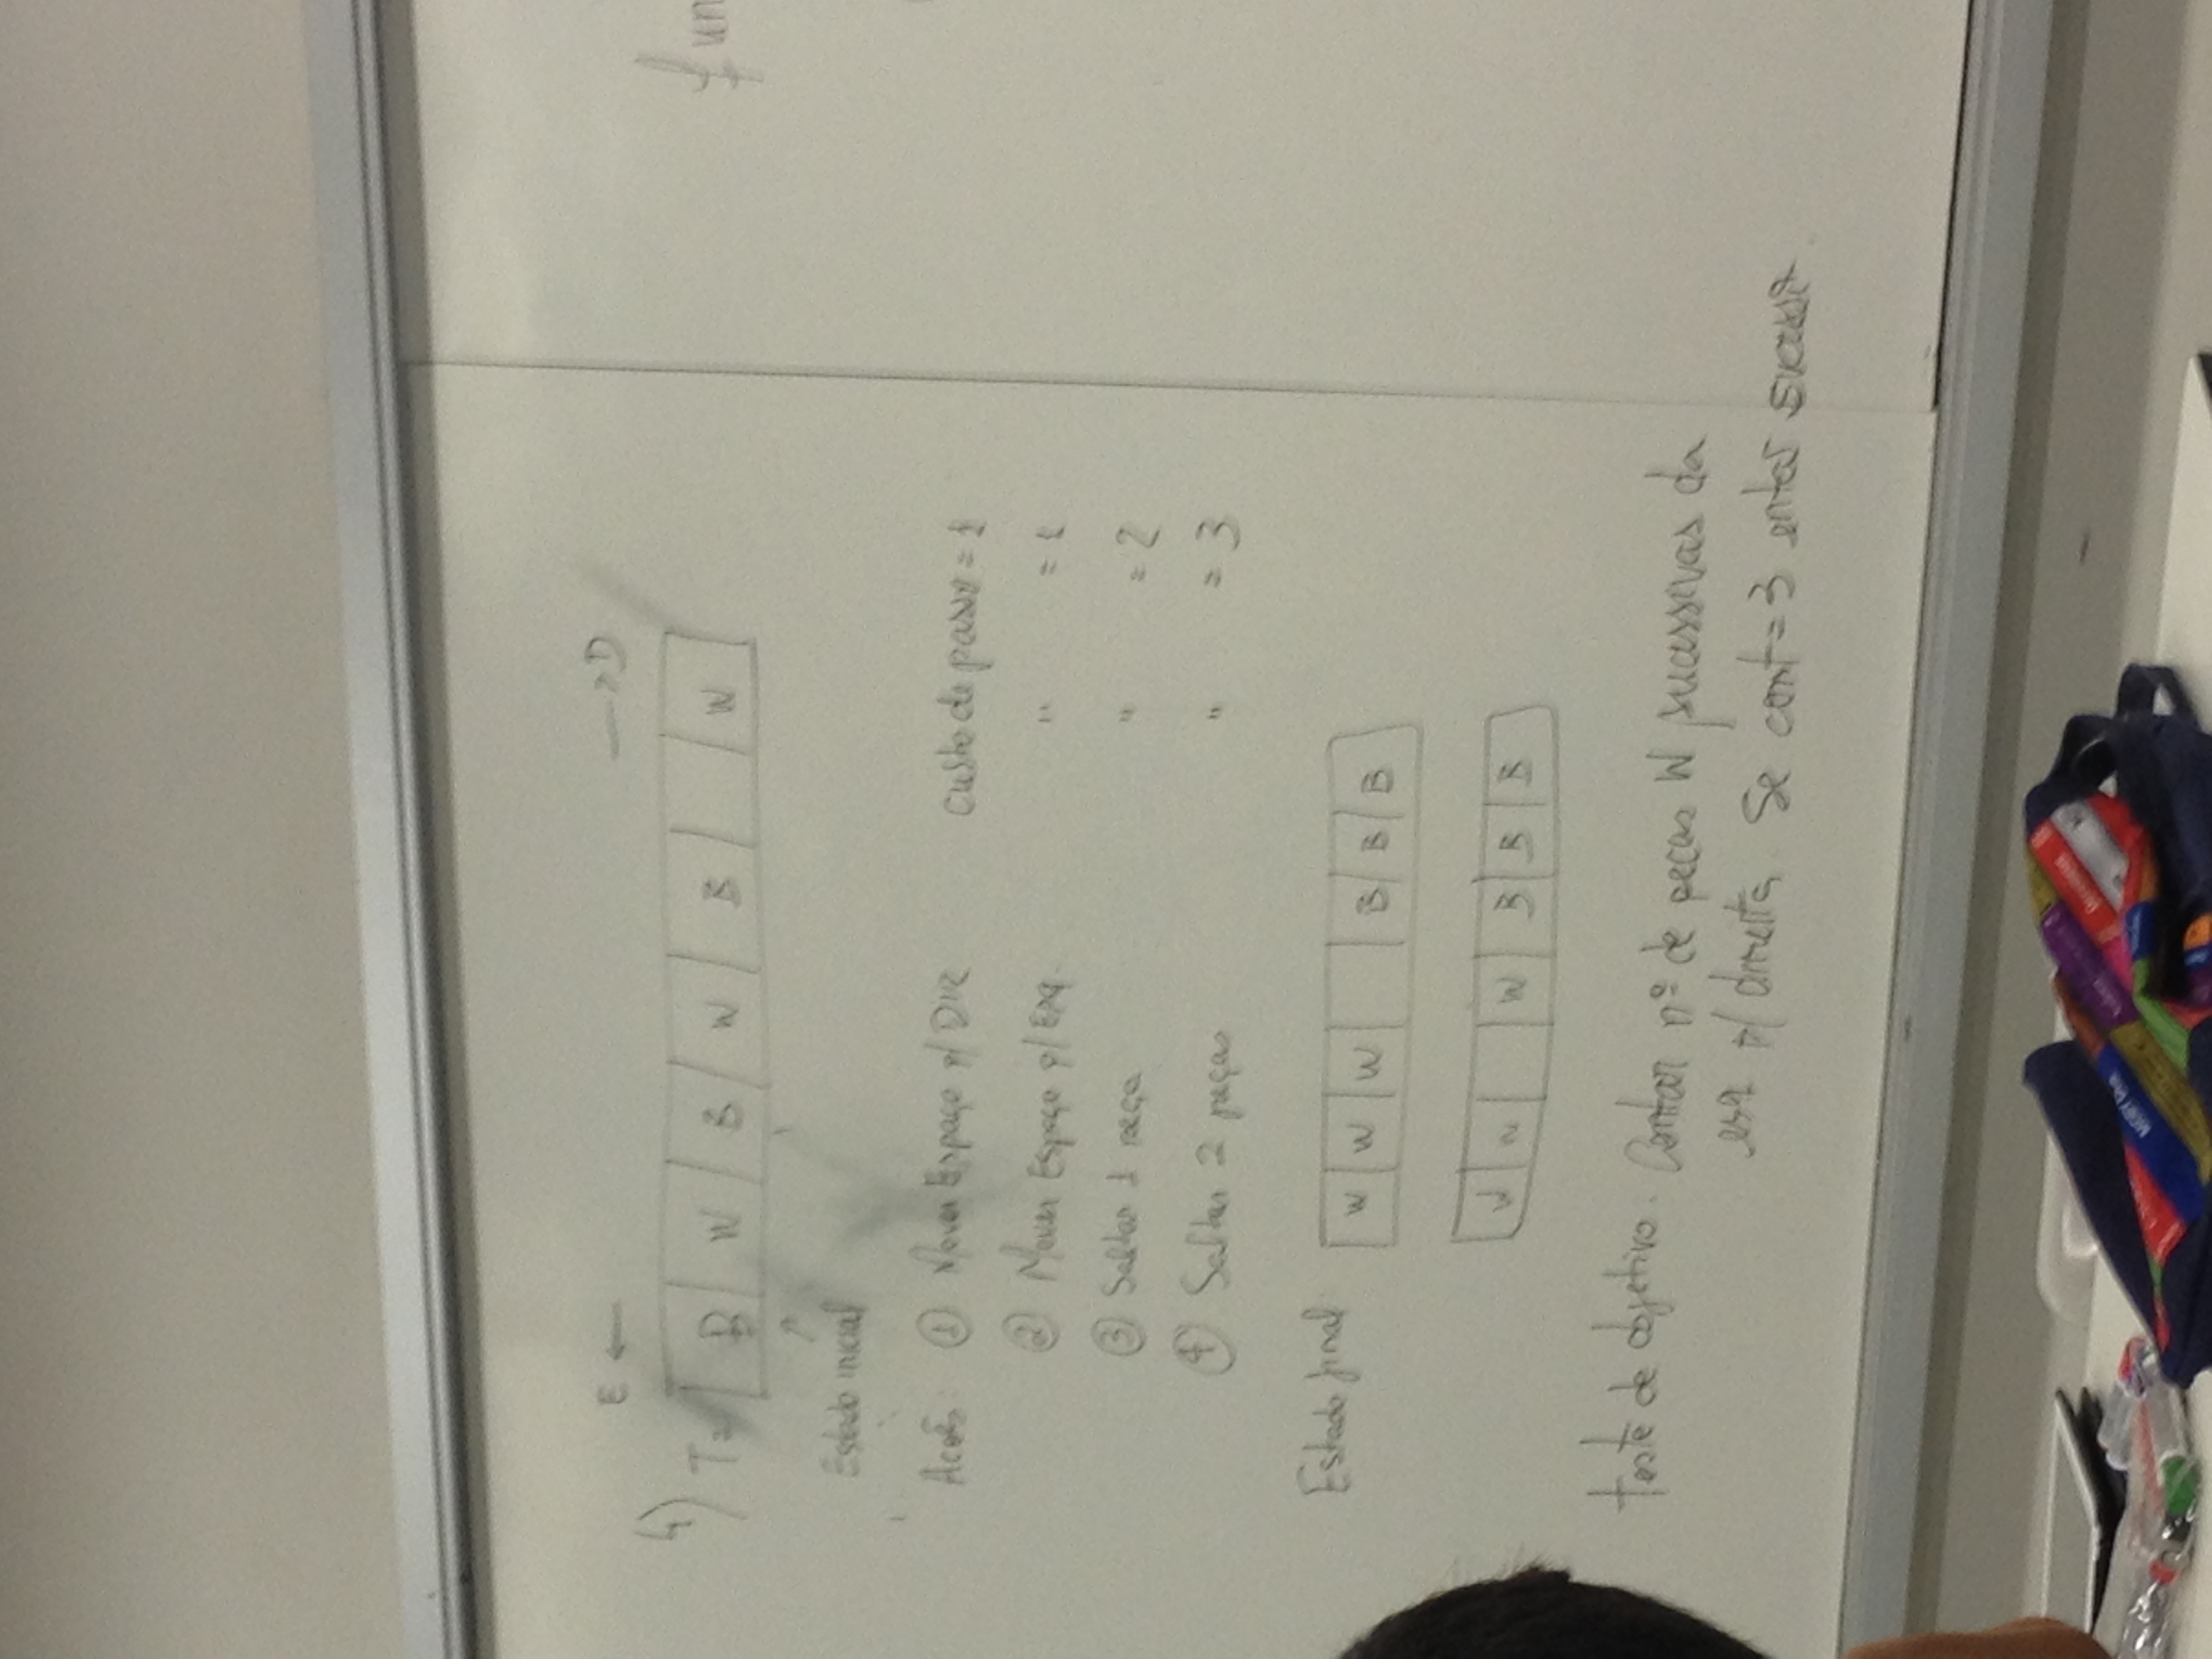 E ← → D
4) T= B W B W B W
Estado inicial
Acões: ① Mover Espaço p/ Dir custo de passo = 1
② Mover Espaço p/ Esq. " = 1
③ Saltar 1 peça " = 2
④ Saltar 2 peças " = 3
Estado final: W W W B B B
W W W B B B
teste de objetivo. Contar nº de peças W sucessivas da
esq p/ direita. Se cont=3 então sucesso.
fun
MOBY Dick